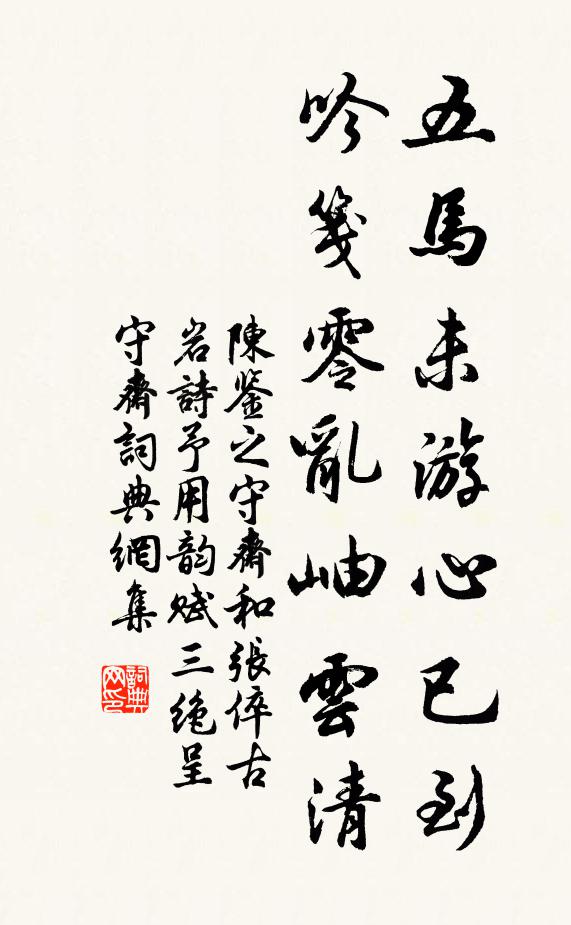 五馬未游心已到
吟箋零亂岫雲清
陳鑒之守齋和張倅古
岩詩予用韵賦三絶呈
守齋詞典網集
詞典网印